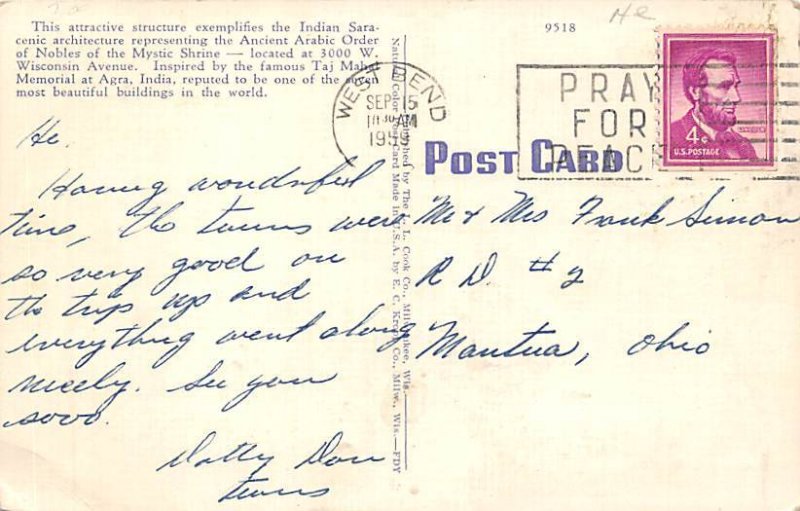 This attractive structure exemplifies the Indian Sara-
cenic architecture representing the Ancient Arabic Order
of Nobles of the Mystic Shrine — located at 3000 W.
Wisconsin Avenue. Inspired by the famous Taj Mahal
Memorial at Agra, India, reputed to be one of the seven
most beautiful buildings in the world.
9518
He
WEST BEND
SEP 15
10 30 AM
1959
PRAY
FOR
PEACE
4¢
U.S. POSTAGE
POST CARD
Natural Color Post Card Made in U.S.A. by E. C. Kropp Co., Milw., Wis.—FDY
Published by The L. L. Cook Co., Milwaukee, Wis.
He.
Having wonderful
time, the twins were
so very good on
the trip up and
everything went along
nicely. See you
soon.
Dotty Don
twins
Mr & Mrs Frank Simon
R D. #2
Mantua, Ohio